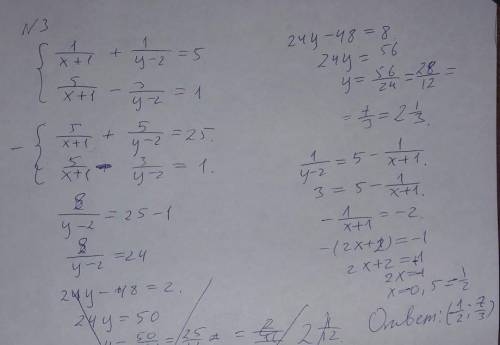 N3
1/(x+1) + 1/(y-2) = 5
5/(x+1) - 3/(y-2) = 1
- 5/(x+1) + 5/(y-2) = 25.
5/(x+1) - 3/(y-2) = 1.
8/(y-2) = 25-1
8/(y-2) = 24
24y-48 = 2.
24y = 50
24y-48 = 8.
24y = 56
y = 56/24 = 28/12 =
= 7/3 = 2 1/3.
1/(y-2) = 5 - 1/(x+1).
3 = 5 - 1/(x+1).
- 1/(x+1) = -2.
-(2x+2) = -1
2x+2 = +1
2x=-1
x=-0,5=-1/2
Ответ: (-1/2; 7/3)